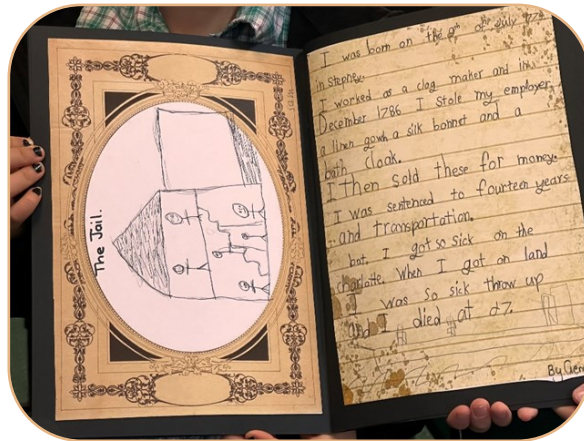 The Jail.
I was born on the 9th of July 177
in Stepney.
I worked as a clog maker and in
December 1786 I stole my employer
a linen gown a silk bonnet and a
bath cloak.
I then sold these for money.
I was sentenced to fourteen years
and transportation.
I got so sick on the
charlotte. When I got on land
I was so sick throw up
and I died at 27.
By